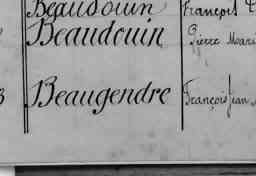 Beaudouin François
Beaudouin Pierre Marie
3 Beaugendre François Jean